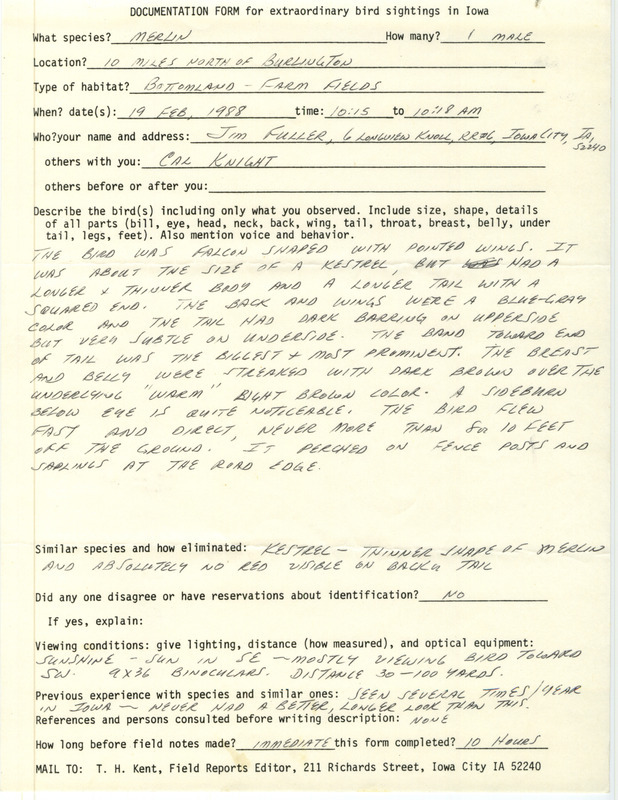 DOCUMENTATION FORM for extraordinary bird sightings in Iowa
What species? MERLIN How many? 1 MALE
Location? 10 MILES NORTH OF BURLINGTON
Type of habitat? BOTTOMLAND - FARM FIELDS
When? date(s): 19 FEB, 1988 time: 10:15 to 10:18 AM
Who?your name and address: JIM FULLER, 6 LONGVIEW KNOLL, RR#6, IOWA CITY, IA,
52240
others with you: CAL KNIGHT
others before or after you:
Describe the bird(s) including only what you observed. Include size, shape, details
of all parts (bill, eye, head, neck, back, wing, tail, throat, breast, belly, under
tail, legs, feet). Also mention voice and behavior.
THE BIRD WAS FALCON SHAPED WITH POINTED WINGS. IT
WAS ABOUT THE SIZE OF A KESTREL, BUT HAD A
LONGER & THINNER BODY AND A LONGER TAIL WITH A
SQUARED END. THE BACK AND WINGS WERE A BLUE-GRAY
COLOR AND THE TAIL HAD DARK BARRING ON UPPERSIDE
BUT VERY SUBTLE ON UNDERSIDE. THE BAND TOWARD END
OF TAIL WAS THE BIGGEST & MOST PROMINENT. THE BREAST
AND BELLY WERE STREAKED WITH DARK BROWN OVER THE
UNDERLYING "WARM" LIGHT BROWN COLOR. A SIDEBURN
BELOW EYE IS QUITE NOTICEABLE. THE BIRD FLEW
FAST AND DIRECT, NEVER MORE THAN 8 or 10 FEET
OFF THE GROUND. IT PERCHED ON FENCE POSTS AND
SAPLINGS AT THE ROAD EDGE.
Similar species and how eliminated: KESTREL - THINNER SHAPE OF MERLIN
AND ABSOLUTELY NO RED VISIBLE ON BACK & TAIL
Did any one disagree or have reservations about identification? NO
If yes, explain:
Viewing conditions: give lighting, distance (how measured), and optical equipment:
SUNSHINE - SUN IN SE - MOSTLY VIEWING BIRD TOWARD
SW. 9X36 BINOCULARS. DISTANCE 30-100 YARDS.
Previous experience with species and similar ones: SEEN SEVERAL TIMES/YEAR
IN IOWA - NEVER HAD A BETTER, LONGER LOOK THAN THIS.
References and persons consulted before writing description: NONE
How long before field notes made? IMMEDIATE this form completed? 10 HOURS
MAIL TO: T. H. Kent, Field Reports Editor, 211 Richards Street, Iowa City IA 52240